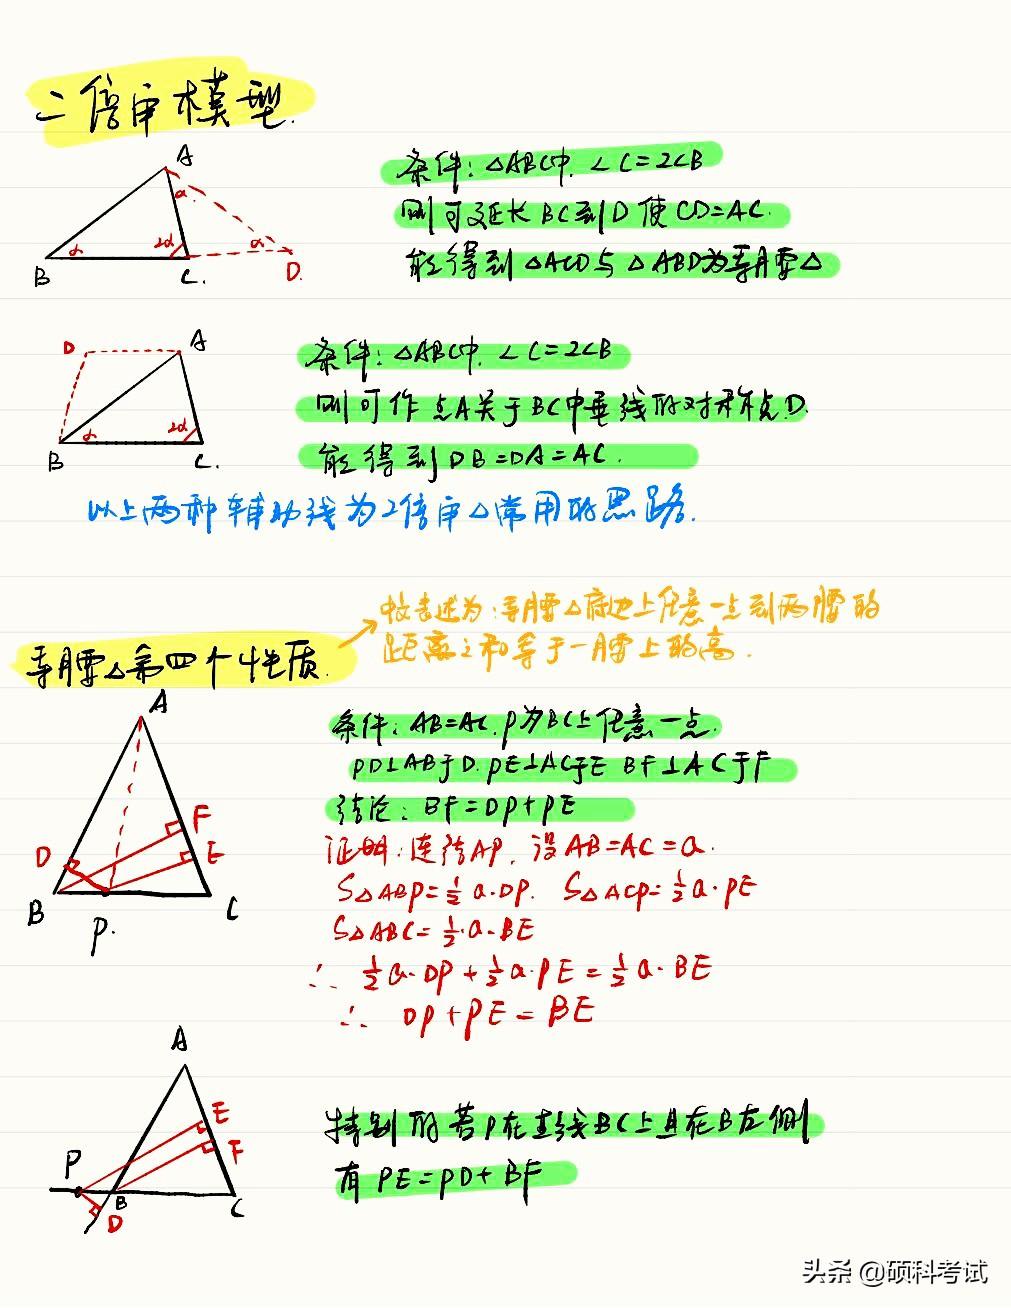 二倍角模型.
A
α
α
2α
α
B
C.
D.
条件:△ABC中.∠C=2∠B
则可延长BC到D使CD=AC.
能得到△ACD与△ABD为等腰△
D
A
α
2α
B
C.
条件:△ABC中.∠C=2∠B
则可作点A关于BC中垂线的对称点D.
能得到DB=DA=AC.
以上两种辅助线为2倍角△常用的思路.
故表述为:等腰△底边上任意一点到两腰的
距离之和等于一腰上的高.
等腰△第四个性质.
A
F
D
E
B
C
P.
条件:AB=AC.P为BC上任意一点.
PD⊥AB于D.PE⊥AC于E BF⊥AC于F
结论:BF=DP+PE
证明:连结AP,设AB=AC=a.
S△ABP=½a·DP. S△ACP=½a·PE
S△ABC=½·a·BE
∴ ½a·DP+½a·PE=½a·BE
∴ DP+PE=BE
A
E
F
P
B
D
C
特别的若P在直线BC上且在B左侧
有PE=PD+BF
头条 @硕科考试